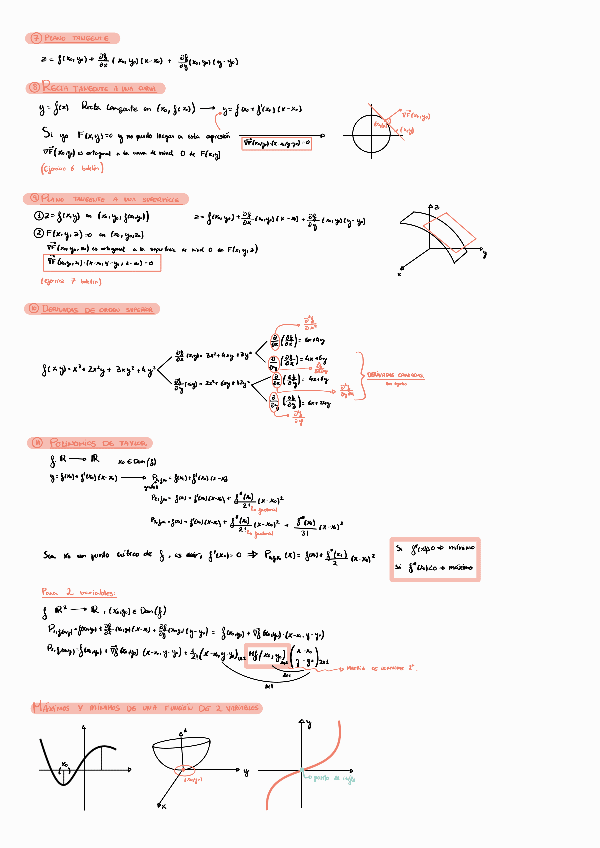 ⑦ PLANO TANGENTE
z = f(x₀,y₀) + ∂f/∂x (x₀,y₀)(x-x₀) + ∂f/∂y (x₀,y₀)(y-y₀)
⑧ RECTA TANGENTE A UNA CURVA
y = f(x) Recta tangente en (x₀, f(x₀)) → y = f(x₀) + f'(x₀)(x-x₀)
Si yo F(x,y)=0 y no puedo llegar a esta expresión
∇F(x₀,y₀)·(x-x₀,y-y₀)=0
∇F(x₀,y₀) es ortogonal a la curva de nivel 0 de F(x,y)
(Ejercicio 6 boletín)
∇F(x₀,y₀)
(x,y)
⑨ PLANO TANGENTE A UNA SUPERFICIE
① z = f(x,y) en (x₀,y₀,f(x₀,y₀)) z = f(x₀,y₀) + ∂f/∂x (x₀,y₀)(x-x₀) + ∂f/∂y (x₀,y₀)(y-y₀)
② F(x,y,z)=0 en (x₀,y₀,z₀)
∇F(x₀,y₀,z₀) es ortogonal a la superficie de nivel 0 de F(x,y,z)
∇F(x₀,y₀,z₀)·(x-x₀,y-y₀,z-z₀)=0
(ejercicio 7 boletín)
z
y
x
⑩ DERIVADAS DE ORDEN SUPERIOR
f(x,y) = x³ + 2x²y + 3xy² + 4y³
∂f/∂x (x,y) = 3x² + 4xy + 3y²
∂/∂x (∂f/∂x) = 6x+4y
∂²f/∂x²
∂/∂y (∂f/∂x) = 4x+6y
∂f/∂y (x,y) = 2x² + 6xy + 12y²
∂/∂x (∂f/∂y) = 4x+6y
∂²f/∂y∂x
∂/∂y (∂f/∂y) = 6x+24y
DERIVADAS CRUZADAS
⑪ POLINOMIOS DE TAYLOR
f ℝ → ℝ x₀ ∈ Dom(f)
y = f(x₀) + f'(x₀)(x-x₀) → P₁,f,x₀ = f(x₀) + f'(x₀)(x-x₀)
grado
P₂,f,x₀ = f(x₀) + f'(x₀)(x-x₀) + f''(x₀)/2! (x-x₀)²
↳ factorial
P₃,f,x₀ = f(x₀) + f'(x₀)(x-x₀) + f''(x₀)/2! (x-x₀)² + f'''(x₀)/3! (x-x₀)³
↳ factorial
Sea x₀ un punto crítico de f, es decir, f'(x₀)=0 ⇒ P₂,f,x₀ (x) = f(x₀) + f''(x₀)/2 (x-x₀)²
Si f''(x₀)>0 ⇒ mínimo
Si f''(x₀)<0 ⇒ máximo
Para 2 variables:
f ℝ² → ℝ, (x₀,y₀) ∈ Dom(f)
P₁,f,(x₀,y₀) = f(x₀,y₀) + ∂f/∂x (x₀,y₀)(x-x₀) + ∂f/∂y (x₀,y₀)(y-y₀) = f(x₀,y₀) + ∇f(x₀,y₀)·(x-x₀,y-y₀)
P₂,f,(x₀,y₀) = f(x₀,y₀) + ∇f(x₀,y₀)·(x-x₀,y-y₀) + 1/2! (x-x₀,y-y₀)₁ₓ₂ Hf(x₀,y₀)₂ₓ₂ (x-x₀ y-y₀)₂ₓ₁
2x1
1x1
MÁXIMOS Y MÍNIMOS DE UNA FUNCIÓN DE 2 VARIABLES
x₀
z
y
x
y
punto de inflex